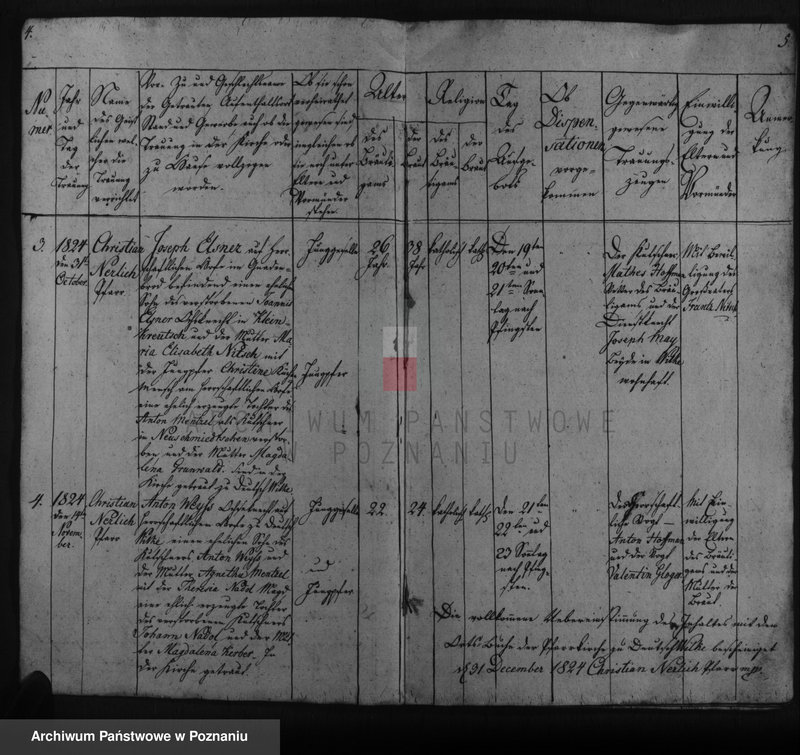 4.
5
Nu-
mer
Jahr
und
Tag
der
Trauung
Name
des Geist-
lichen wel-
cher die
Trauung
verrichtet
Vor- Zu und Geschlechtsname
der Getrauten Aufenthaltsort
Stand und Gewerbe auch ob die
Trauung in der Kirche oder
zu Hause vollzogen
worden.
Ob sie schon
verheirathet
gewesen sind
imgleichen ob
sie noch unter
Eltern und
Vormünder
stehn.
Alter
des
Bräuti-
gams
der
Braut
Religion
des
Bräu-
tigams
der
Braut
Tag
des
Aufge-
bots
Ob
Dispen-
sationen
vorge-
kommen
Gegenwärtig
gewesene
Trauungs-
zeugen
Einwilli-
gung der
Eltern und
Vormünder
Anmer-
kung.
3.
1824
den 31t
October.
Christian
Nerlich
Pfarr
Joseph Elsner auf herr-
schaftlichen Hofe in
befindend einen ehelich
Sohn des verstorbenen Joannis
Elsner Ochsknecht in Klein-
Kreutsch und der Mutter Ma-
ria Elisabeth Nitsch mit
der Jungfer Christine
Mensch am herrschaftlichen Hofe
eine ehelich erzeugte Tochter des
Anton Mentzel als Kutscher
in Neuschmiedtschen verstor-
ben und der Mutter Magda-
lena Grunwald. Sind in der
Kirche getraut zu Deutsch Wilke
Junggeselle
Jungfer
26
Jahr.
38
Jahr
katholisch
kath.
Den 19ten
20ten und
21ten Sonn-
tag nach
Pfingsten
Der Kutscher
Mathes Hoffman
Vetter des Bräu-
tigams und der
Dienstknecht
Joseph May
Beyde in Wilke
wohnhaft.
Mit Bewil-
ligung des
Frantz Nitsch
4.
1824
den 14t
Novem-
ber.
Christian
Nerlich
Pfarr
Anton Weiss Ochsknecht auf
herrschaftlichen Hofe zu Deutsch
Wilke einen ehelichen Sohn des
Kutschers Anton Weiss und
der Mutter Agnetha Mentzel
mit der Theresia Nadol Magd
eine ehelich erzeugte Tochter
des verstorbenen Kutschers
Johann Nadol und der Mut-
ter Magdalena Kerber. In
der Kirche getraut.
Junggeselle
und
Jungfer
22.
24.
katholisch
kath.
Den 21ten
22ten und
23 Sonntag
nach Pfing-
sten.
Der herrschaft-
liche Vogt
Anton Hoffman
und der Vogt
Valentin Gloger
Mit Ein-
willigung
der Eltern
des Bräuti-
gams und der
Mutter der
Braut.
Die vollkommene Uebereinstimmung des Inhaltes mit dem
Orts Buche der Pfarrkirche zu Deutsch Wilke bescheiniget
d 31 December 1824 Christian Nerlich Pfarr mp.
ARCHIWUM PAŃSTWOWE
W POZNANIU
Archiwum Państwowe w Poznaniu